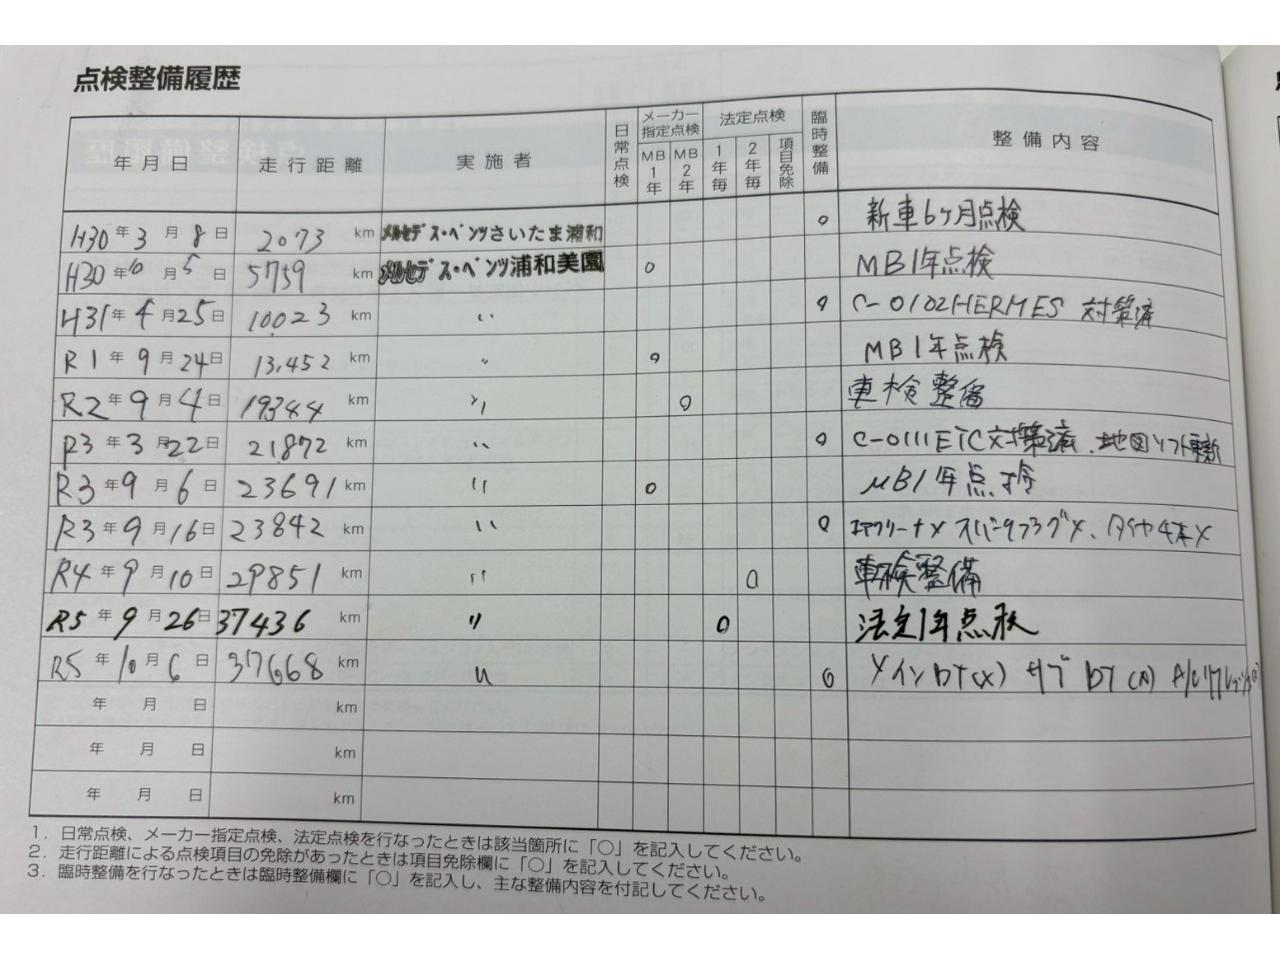 点検整備履歴
年月日 走行距離 実施者 日常点検 メーカー指定点検 MB1年 MB2年 法定点検 1年毎 2年毎 項目免除 臨時整備 整備内容
H30年3月8日 2073 km メルセデス・ベンツさいたま浦和 ○ 新車6ヶ月点検
H30年10月5日 5759 km メルセデス・ベンツ浦和美園 ○ MB1年点検
H31年4月25日 10023 km 〃 ○ C-0102HERMES 対策済
R1年9月24日 13,452 km 〃 ○ MB1年点検
R2年9月4日 19344 km 〃 ○ 車検整備
R3年3月22日 21872 km 〃 ○ C-0111ETC対策済、地図ソフト更新
R3年9月6日 23691 km 〃 ○ MB1年点検
R3年9月16日 23842 km 〃 ○ エアクリーナ× スパークプラグ×、タイヤ4本×
R4年9月10日 29851 km 〃 ○ 車検整備
R5年9月26日 37436 km 〃 ○ 法定1年点検
R5年10月6日 37668 km 〃 ○ メインBT(×) サブBT(×) A/Cリフレッシュ
年 月 日 km
年 月 日 km
年 月 日 km
1. 日常点検、メーカー指定点検、法定点検を行なったときは該当箇所に「○」を記入してください。
2. 走行距離による点検項目の免除があったときは項目免除欄に「○」を記入してください。
3. 臨時整備を行なったときは臨時整備欄に「○」を記入し、主な整備内容を付記してください。